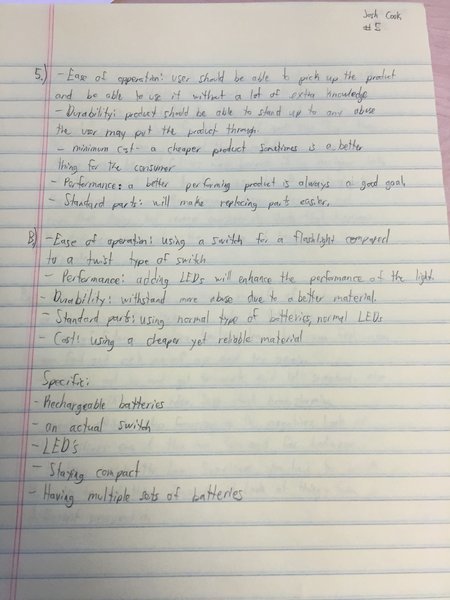 Josh Cook
#5
5.) - Ease of opperation: user should be able to pick up the product
and be able to use it without a lot of extra knowledge
- Durability: product should be able to stand up to any abuse
the user may put the product through.
- minimum cost - a cheaper product sometimes is a better
thing for the consumer
- Performance: a better performing product is always a good goal.
- Standard parts: will make replacing parts easier.
B.) - Ease of operation: using a switch for a flashlight compared
to a twist type of switch
- Performance: adding LEDs will enhance the performance of the light.
- Durability: withstand more abuse due to a better material.
- Standard parts: using normal type of batteries, normal LEDs
- Cost: using a cheaper yet reliable material
Specific:
- Rechargeable batteries
- an actual switch
- LED's
- Staying compact
- Having multiple sets of batteries